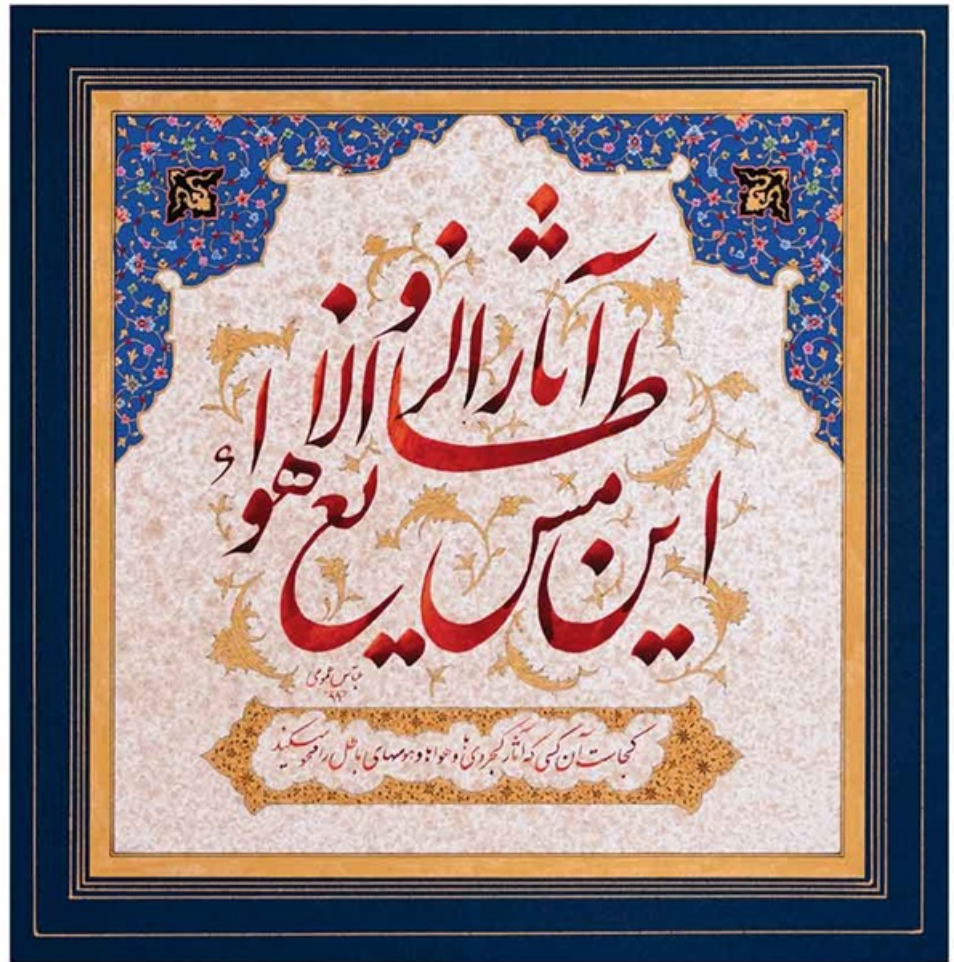 این طامس آثار الزیغ و الاهواء
عباس
۹۹
کجاست آن کسی که آثار کجروی‌ها و هواها و هوسهای باطل را محو میکند